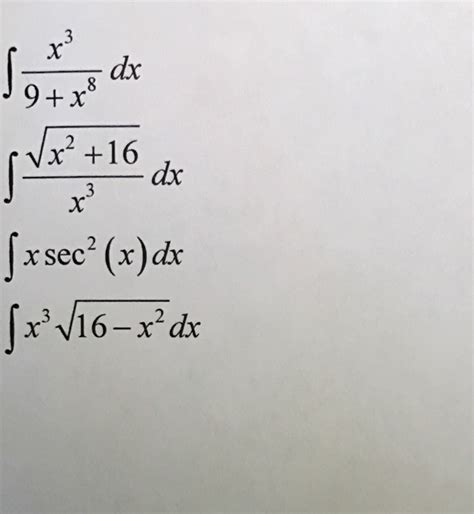 ∫ x³/(9 + x⁸) dx
∫ √(x² + 16)/x³ dx
∫ x sec² (x) dx
∫ x³ √(16 − x²) dx